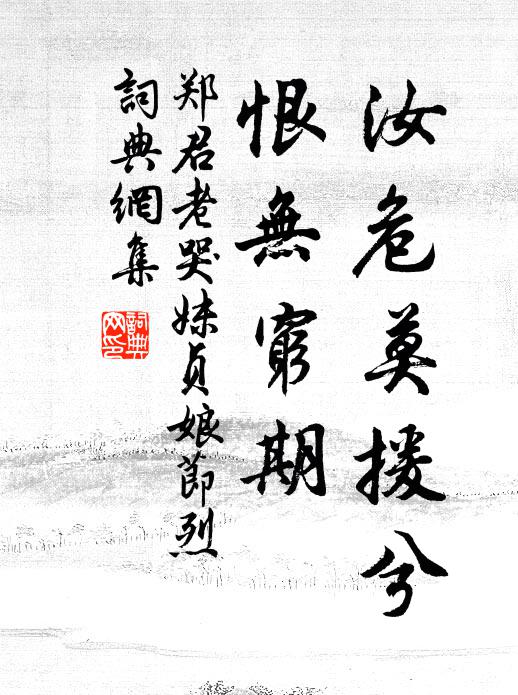 汝危莫援兮
恨無窮期
郑君老哭妹贞娘節烈
詞典網集
詞典
网印